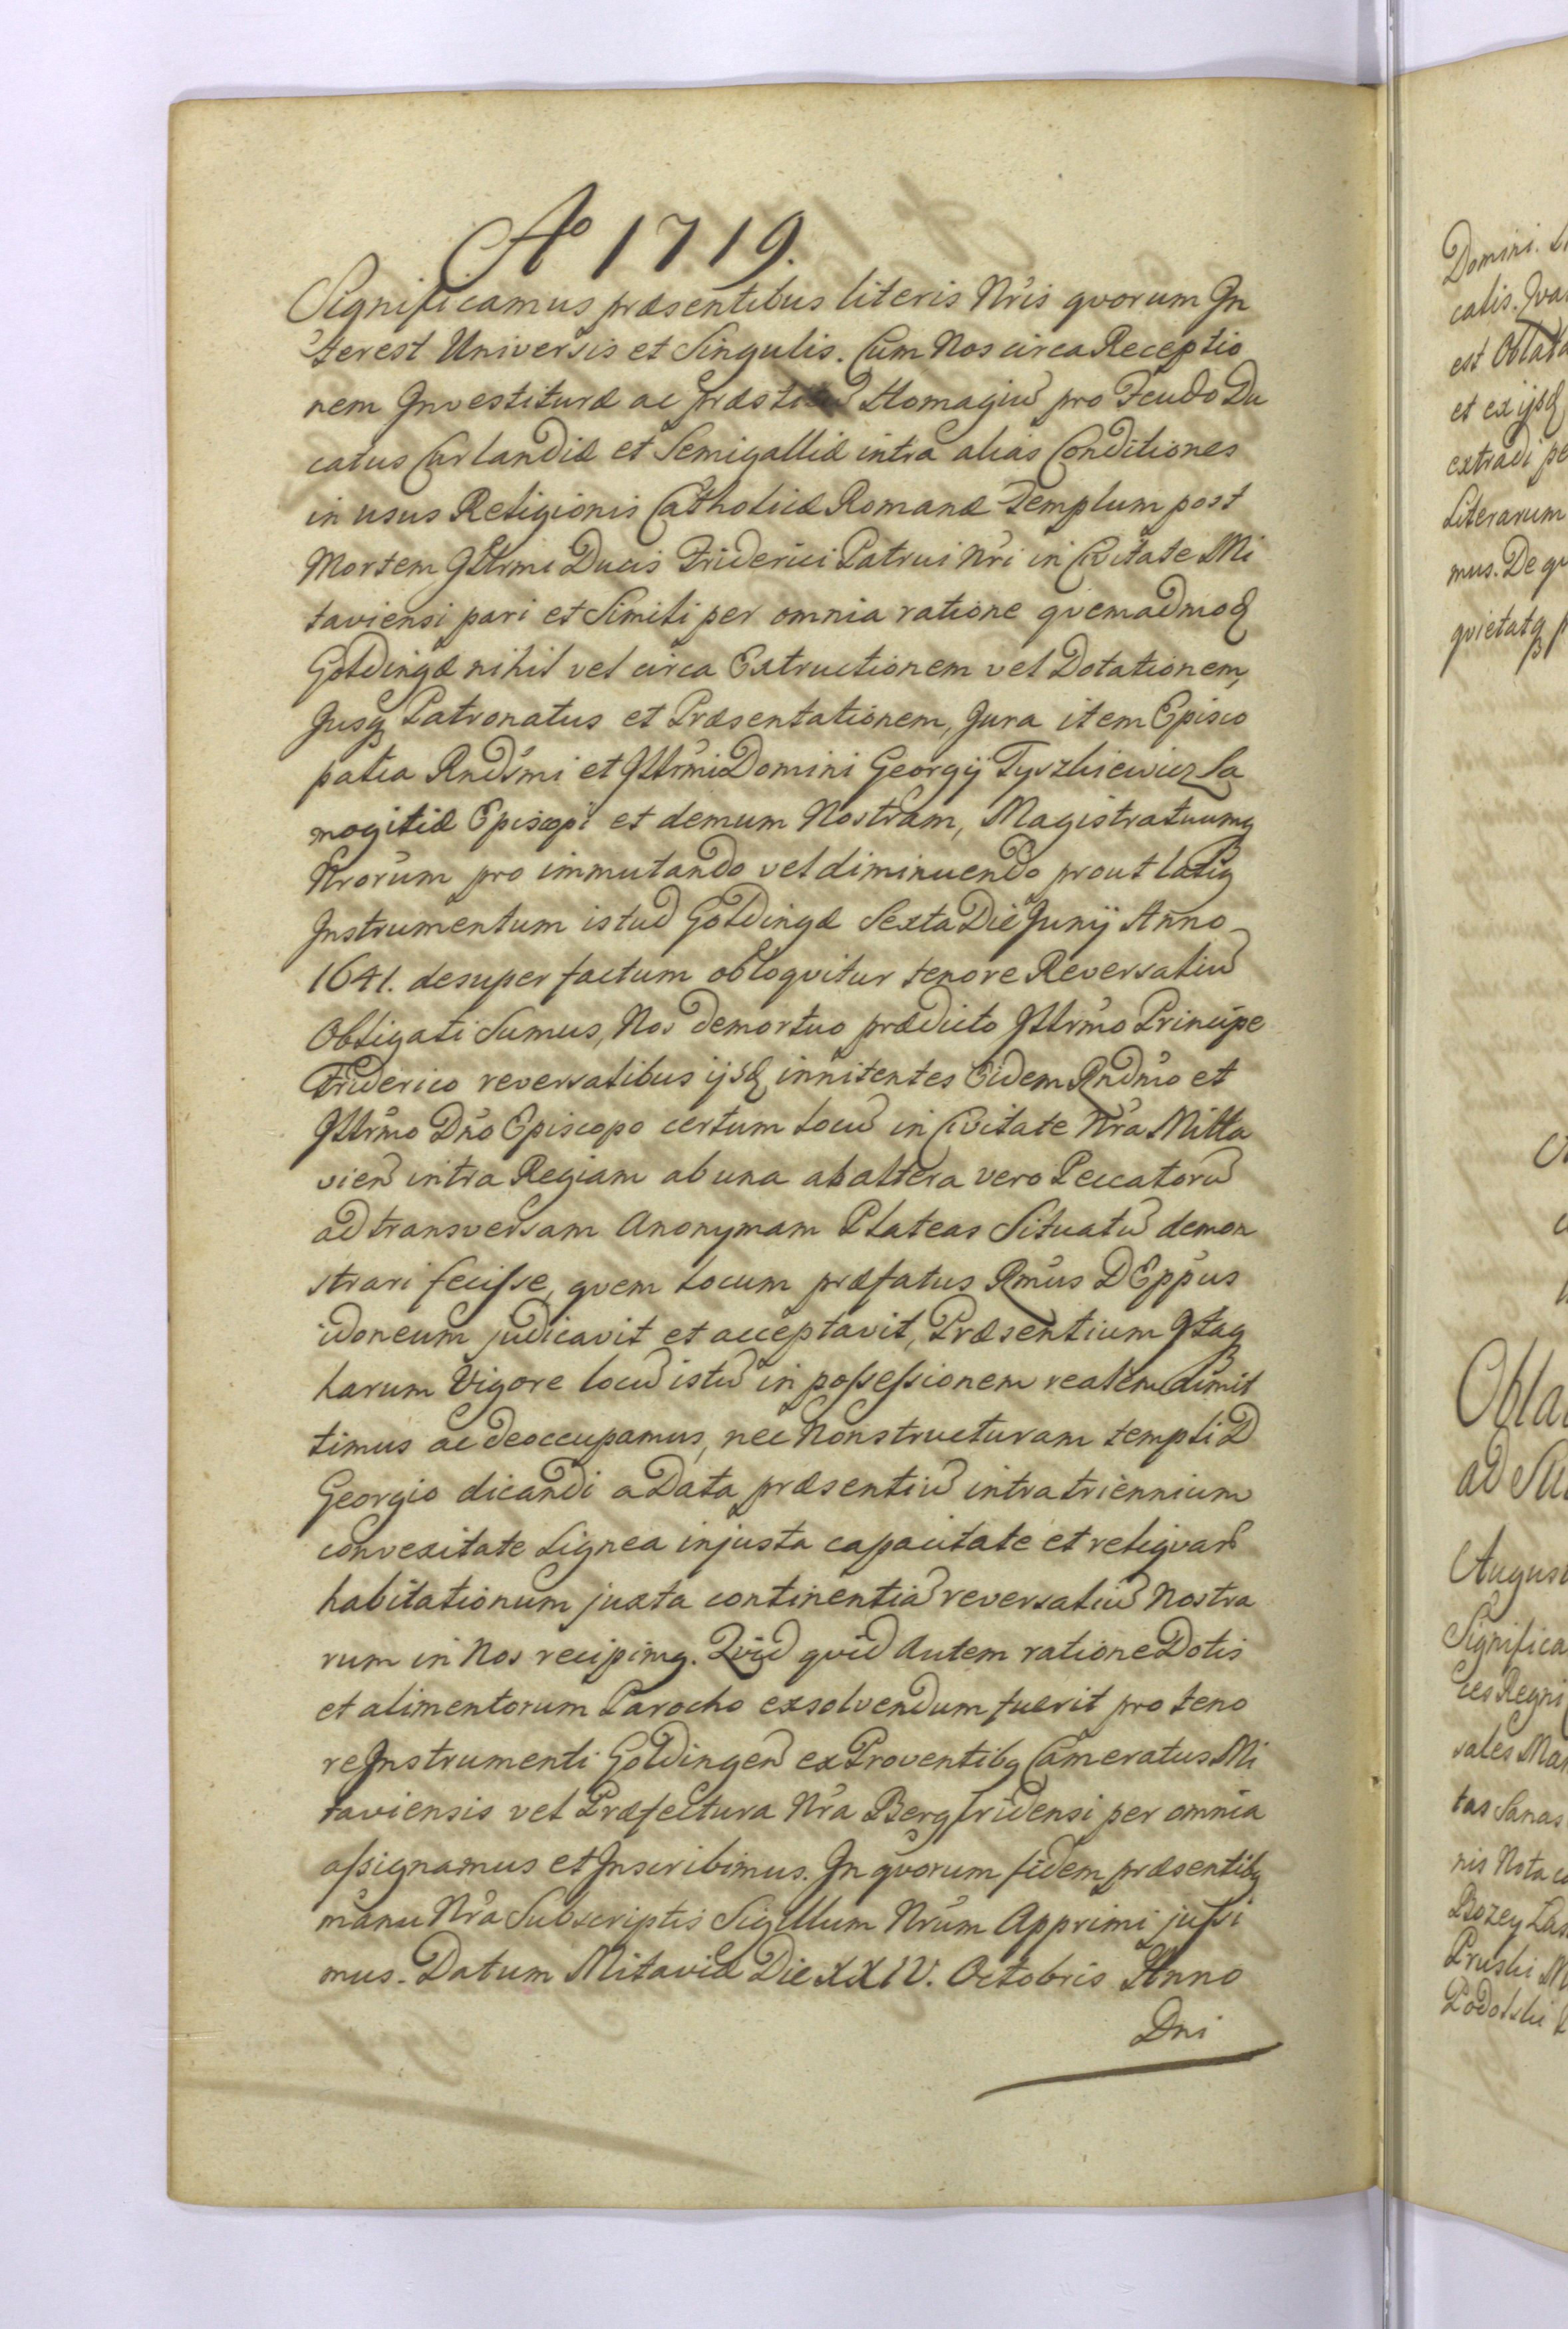 Aº 1719.
Significamus præsentibus literis Nr̃is qvorum In
terest Universis et Singulis. Cum Nos circa Receptio
nem Investituræ ac Homagiũ pro Feudo Du
catus Curlandiæ et Semigalliæ intra alias Conditiones
in usus Religionis Catholicæ Romanæ Templum post
Mortem Illrmi Ducis Friderici Patrui Nr̃i in Civitate Mi
taviensi pari et Simili per omnia ratione qvemadmoð
Goldingæ nihil vel circa Extructionem vel Dotationem,
Jusq Patronatus et Præsentationem, Jura item Episco
palia Rndsm̃i et Illrm̃i Domini Georgij Tyszkiewicz Sa
mogitiæ Episcopi et demum Nostram, Magistratuumq
Nrorum pro immutando vel diminuendo prout latiq
Instrumentum istud Goldingæ Sexta Die Junij Anno
1641. desuper factum obloqvitur tenore Reversaliũ
Obligati Sumus, Nos demortuo prædicto Illrm̃o Principe
Friderico reversalibus ijsð innitentes Eidem Rndm̃o et
Illrm̃o Dño Episcopo certum locũ in Civitate Nr̃a Mitta
vien̄ intra Regiam ab una ab altera vero Peccatorũ
ad transversam Anonymam Plateas Situatũ demon
strari fecisse, qvem locum præfatus Rm̃us D Epp̃us
idoneum judicavit et acceptavit, Præsentium Itaq
harum Vigore locũ istũ in possessionem realem dimit
timus ac deoccupamus, nec Non structuram templi D
Georgio dicandi a Data præsentiũ intra triennium
convexitate Lignea in justa capacitate et reliqvarũ
habitationum juxta continentiã reversaliũ Nostra
rum in Nos recipimq. Qvid qvid Autem ratione Dotis
et alimentorum Parocho exsolvendum fuerit pro teno
re Instrumenti Goldingen̄ ex Proventibq Cameratus Mi
taviensis vel Præfectura Nr̃a Bergfridensi per omnia
assignamus et Inscribimus. In qvorum fidem præsentibq
manu Nr̃a Subscriptis Sigillum Nrũm Apprimi jussi
mus. Datum Mitaviæ Die XXIV. Octobris Anno
Dni
Domini.
catis.
est Oblata
et ex ijsð
extradi
Literarum
mus.
qvietatq
ad
August
Significa
ces Regni
tas Sanas
nis Nota
Pruski
Podolski